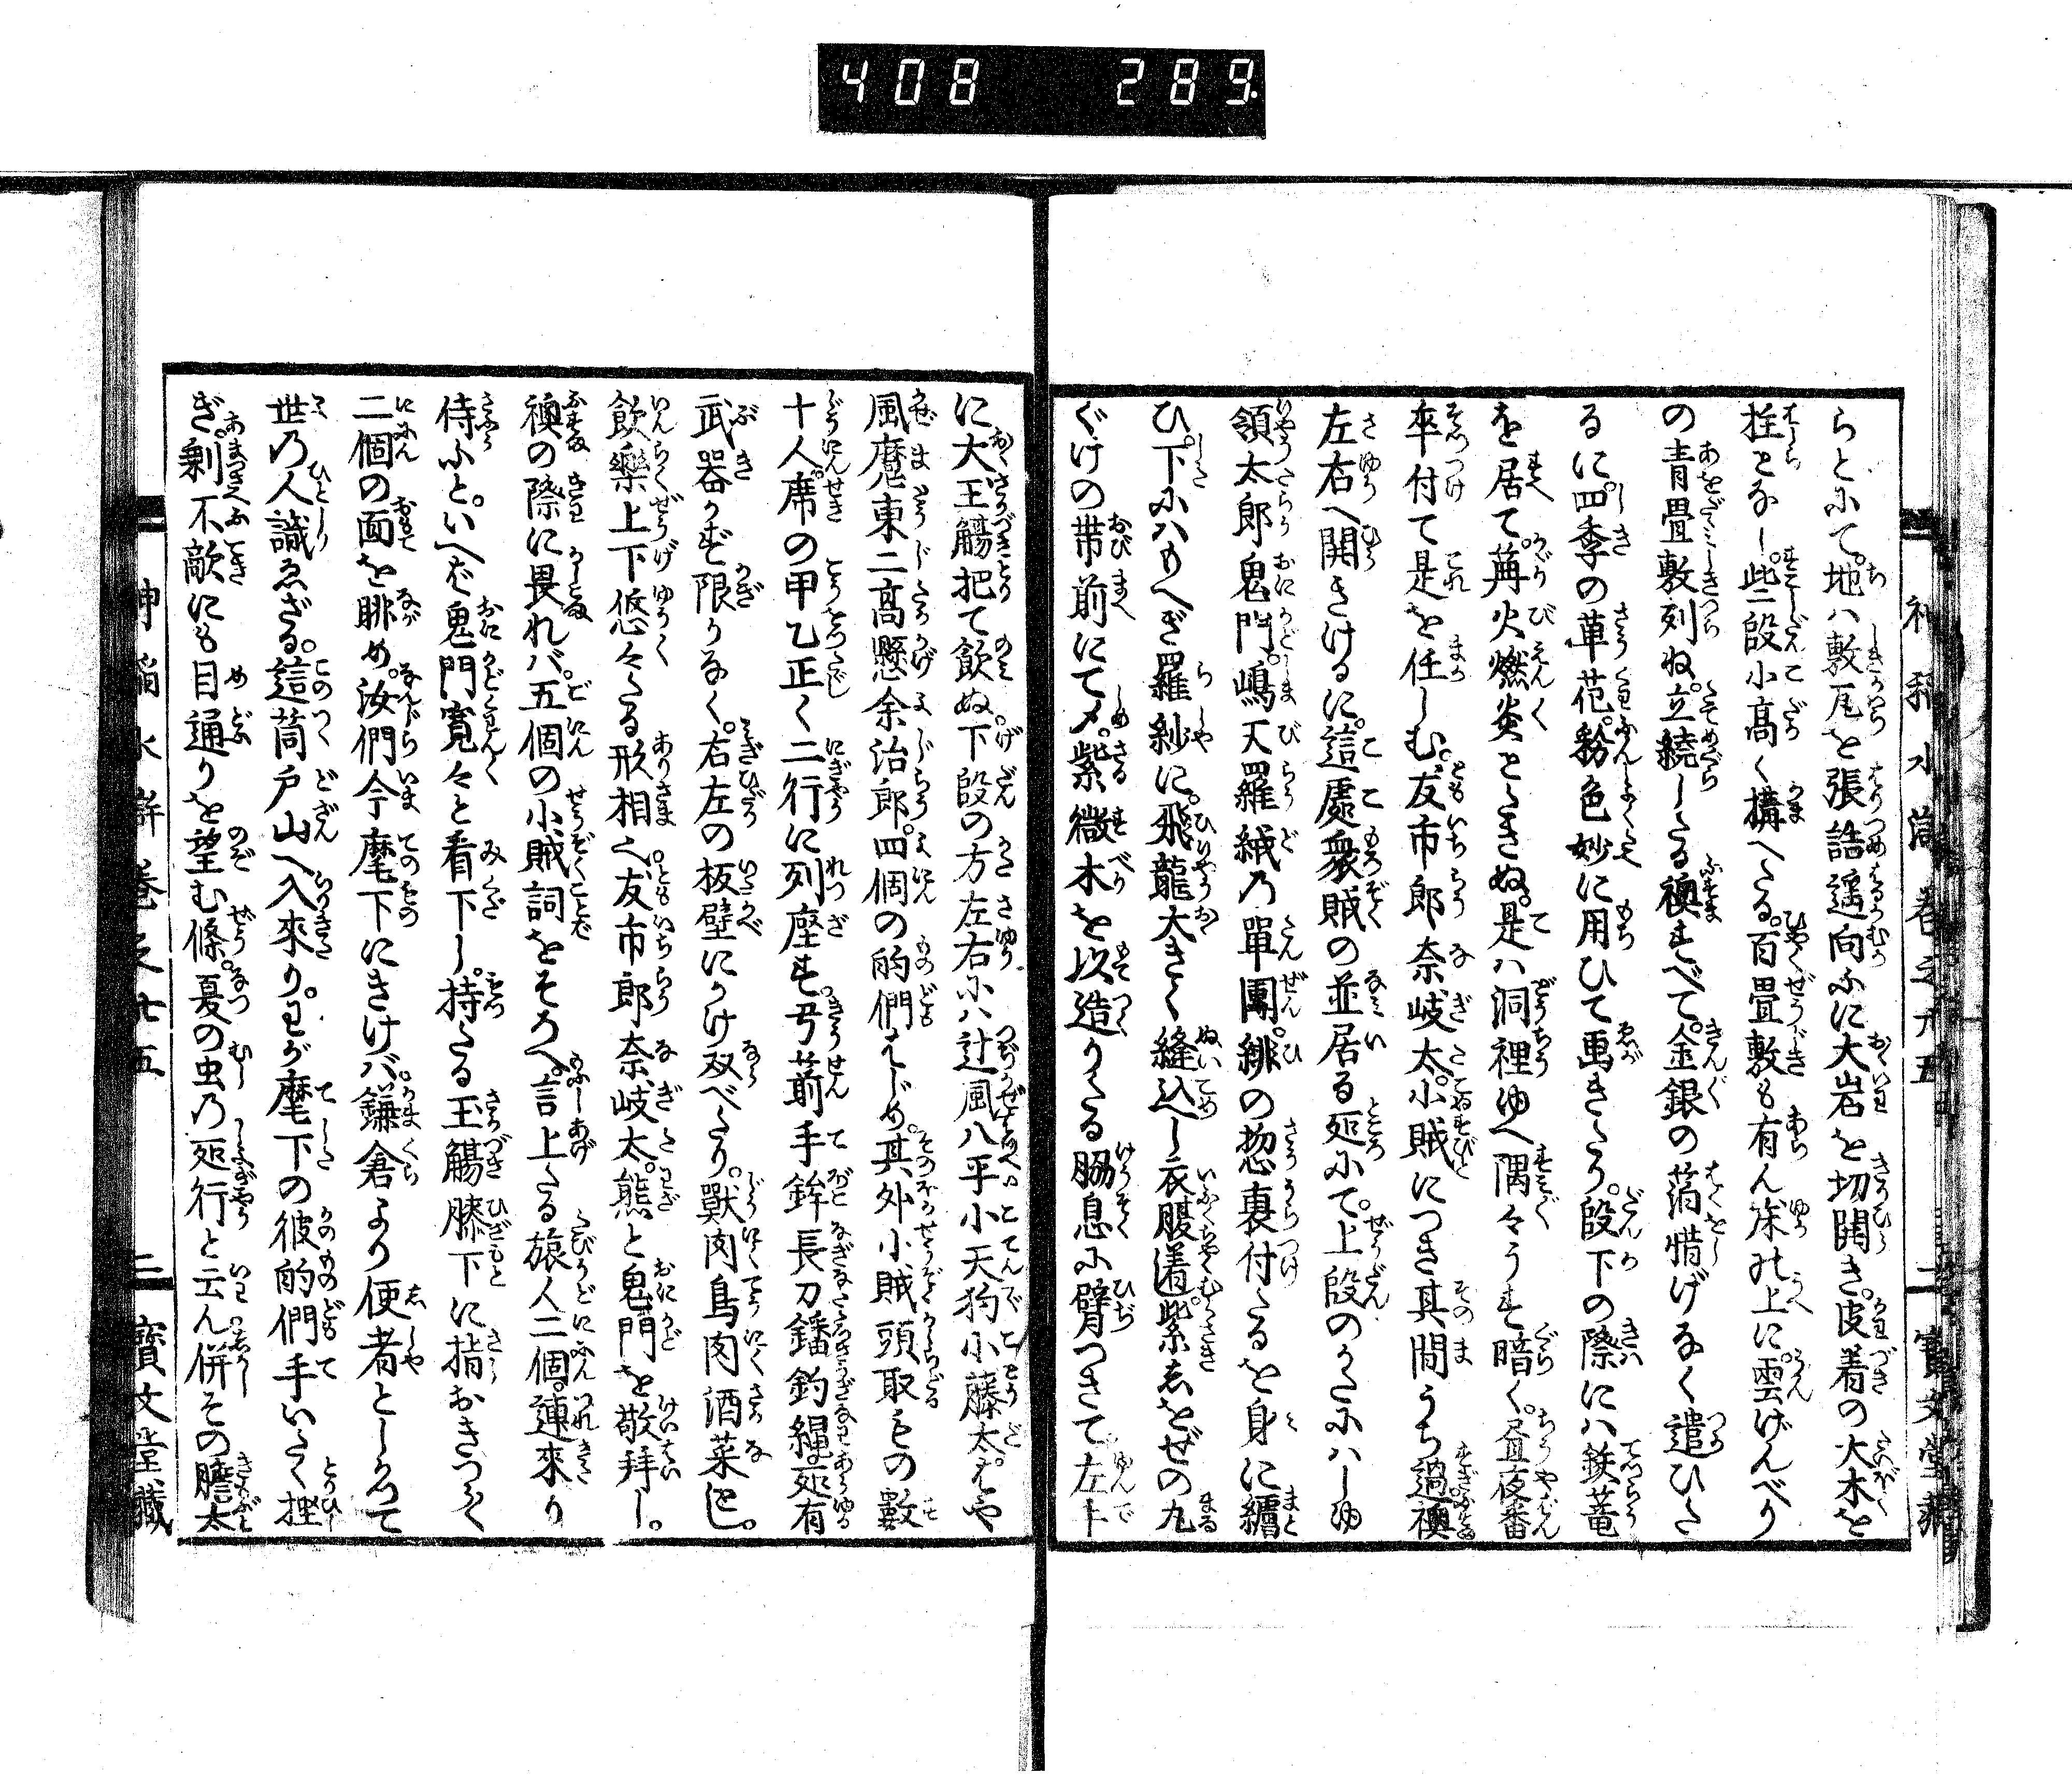 408 289.
らとにて。地ハ敷瓦を張詰遥向ふに大岩を切開き。皮着の大木を
柱となし。些二段小高く構へたる。百畳敷も有ん床の上に。雲げんべり
の青畳敷列ね。立繞したる襖すべて。金銀の箔惜げなく遣ひた
るに。四季の草花。粉色妙に用ひて画きたり。段下の際にハ鉄竃
を居て。篝火燃炎とたきぬ。是ハ洞裡ゆへ隅々うす暗く。昼夜番
卒付て是を任しむ。友市郎奈岐太。小賊につき其間うち過襖
左右へ開きけるに。這處衆賊の並居る処にて。上段のかたにハしゆ
領太郎鬼門。嶋天羅絨乃單團。緋の惣裏付たるを身に纏
ひ。下にハもへぎ羅紗に。飛龍大きく縫込し衣服着。紫志をぜの丸
ぐけの帯前にて〆。紫微木を以造りたる脇息に臂つきて左手
に大王觴把て飲ぬ。下段の方左右にハ辻風八平小天狗小藤太。はや
風魔東二高懸余治郎。四個の的們はじめ。其外小賊頭取もの數
十人席の甲乙正く二行に列座す。弓箭手鉾長刀鐇釣縄。処有
武器かず限りなく。右左の板壁にかけ双べたり。獸肉鳥肉酒菜とし。
飲樂上下悠々たる形相く。友市郎奈岐太。熊と鬼門を敬拜し。
襖の際に畏れバ。五個の小賊詞をそろへ。言上たる旅人二個。連來り
侍ふと。いへバ鬼門寛々と看下し。持たる玉觴膝下に指おきつゝ
二個の面を眺め。汝們今麾下にきけバ。鎌倉より便者としかつて
世乃人識ゑざる。這筒戸山へ入來り。わが麾下の彼的們手いたく挫
ぎ。剰不敵にも目通りを望む條。夏の虫乃処行と云ん併その膽太
神稲水滸巻之廿五 二 寶文堂藏